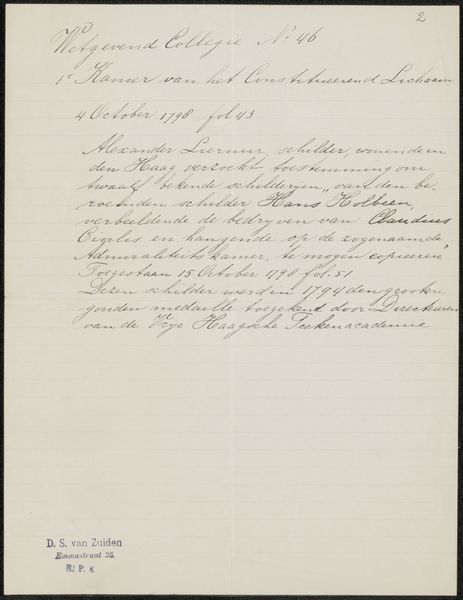 2
Wetgevend Collegie No 46
1e Kamer van het Constitueerend Lichaam
4 October 1798 fol 43
Alexander Liernur, schilder, wonende in
den Haag verzoekt toestemming om
twaalf bekende schilderyen "van den be-
roemden schilder Hans Holbeen,
verbeeldende de bedryven van Claudius
Civiles en hangende op de zogenaamde
Admiraliteits kamer, te mogen copieeren"
Toegestaan 15 October 1798 fol. 51
Dezen schilder werd in 1794 den grooten
gouden medaille toegekend door Directeuren
van de Vrye Haagsche Teekenacademie
D. S. van Zuiden
Emmastraat 26.